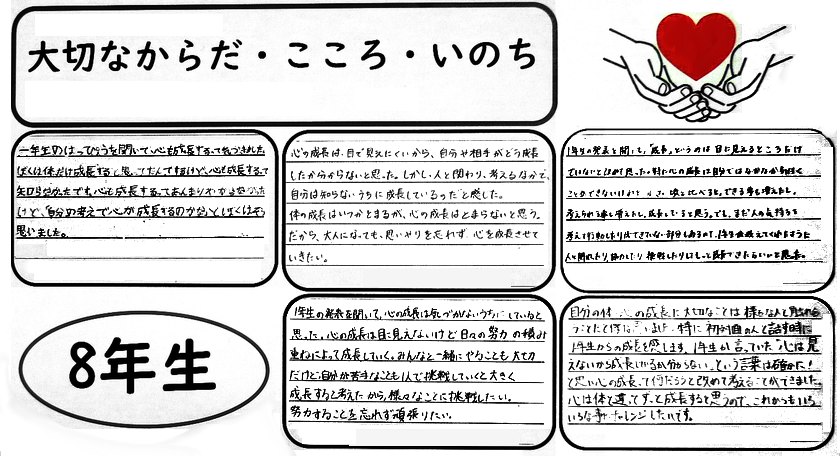 大切なからだ・こころ・いのち
一年生のはっぴょうを聞いて、心も成長するって気づきました。
ぼくは体だけ成長すると思ってたんですけど、心も成長するって
知らなかったでも心も成長するってあんまりわからなかった
けど、自分の考えで心が成長するのかなとぼくはそう
思いました。
心の成長は、目で見えにくいから、自分や相手がどう成長
したか分からないと思った。しかし、人と関わり、考えるなかで、
自分は知らないうちに成長しているのだと感じた。
体の成長はいつかとまるが、心の成長はとまらないと思う。
だから、大人になっても、思いやりを忘れず 心を成長させて
いきたい。
1年生の発表を聞いて、成長というのは目に見えるところだけ
ではないとわかり思った。特に心の成長は自分ではなかなか気付く
ことができないけれど 頃と比べると、できる事も増えたし、
考えられる事も増えたし、成長していると思う。でも、まだ人の気持ちを
考えて行動したりはできていない部分もあるので、1年生の教えてくれたように
人と関わったり、協力したり 挑戦したりしもっと成長できたらいいと思った。
8年生
1年生の発表を聞いて、心の成長は気づかないうちにしていると
思った。心の成長は目に見えないけど日々の努力の積み
重ねによって成長していく。みんなと一緒にやることも大切
だけど自分が苦手なことも1人で挑戦していくと大きく
成長すると考えたから、様々なことに挑戦したい。
努力することを忘れず頑張りたい。
自分の体 心の成長に大切なことは様々な人と関わる
ことだと 思います。特に初対面の人と話す時に
1年生からの成長を感じます。1年生が言っていた「心は見
えないから成長しているか分からない」という言葉は確かに!
と思い心の成長って何だろうと改めて考えることができました。
心は体と違ってずっと成長すると思うので、これからもいろ
いろな事にチャレンジしたいです。